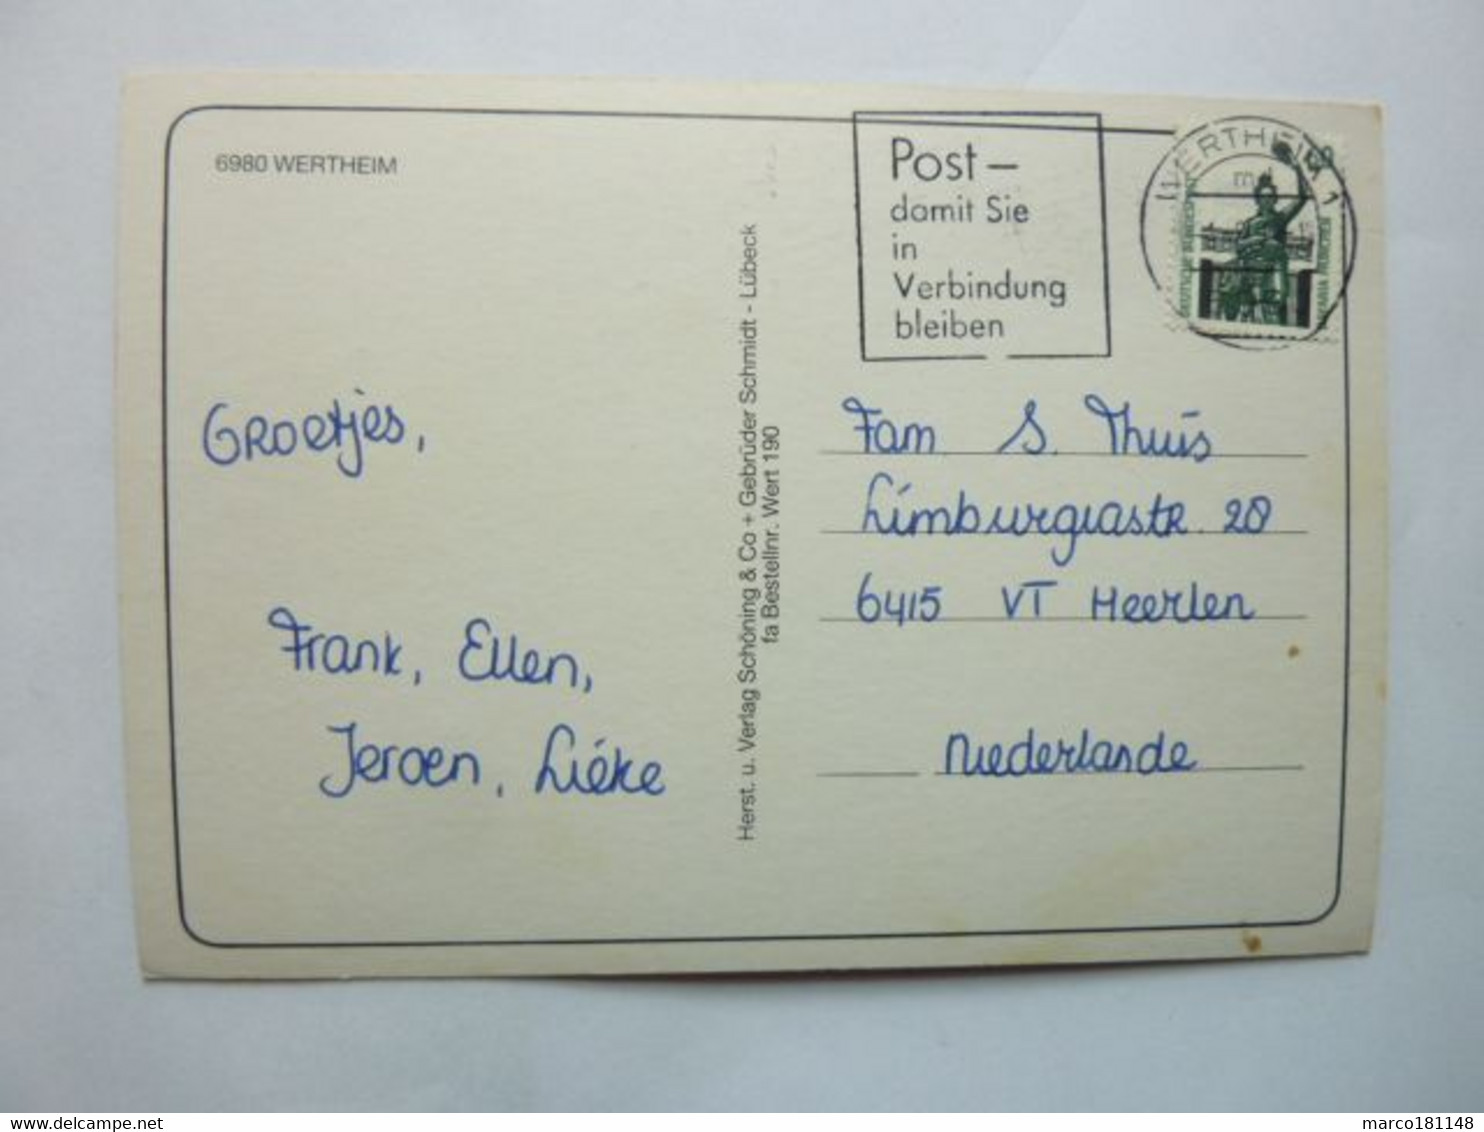 6980 WERTHEIM
Post –
damit Sie
in
Verbindung
bleiben
WERTHEIM 1
DEUTSCHE BUNDESPOST
BAVARIA MÜNCHEN
Groetjes,
Frank, Ellen,
Jeroen, Liéke
Herst. u. Verlag Schöning & Co + Gebrüder Schmidt - Lübeck
fa Bestellnr. Wert 190
Fam S. Thuis
Limburgiastr. 28
6415 VT Heerlen
Niederlande
delcampe.net
marco181148